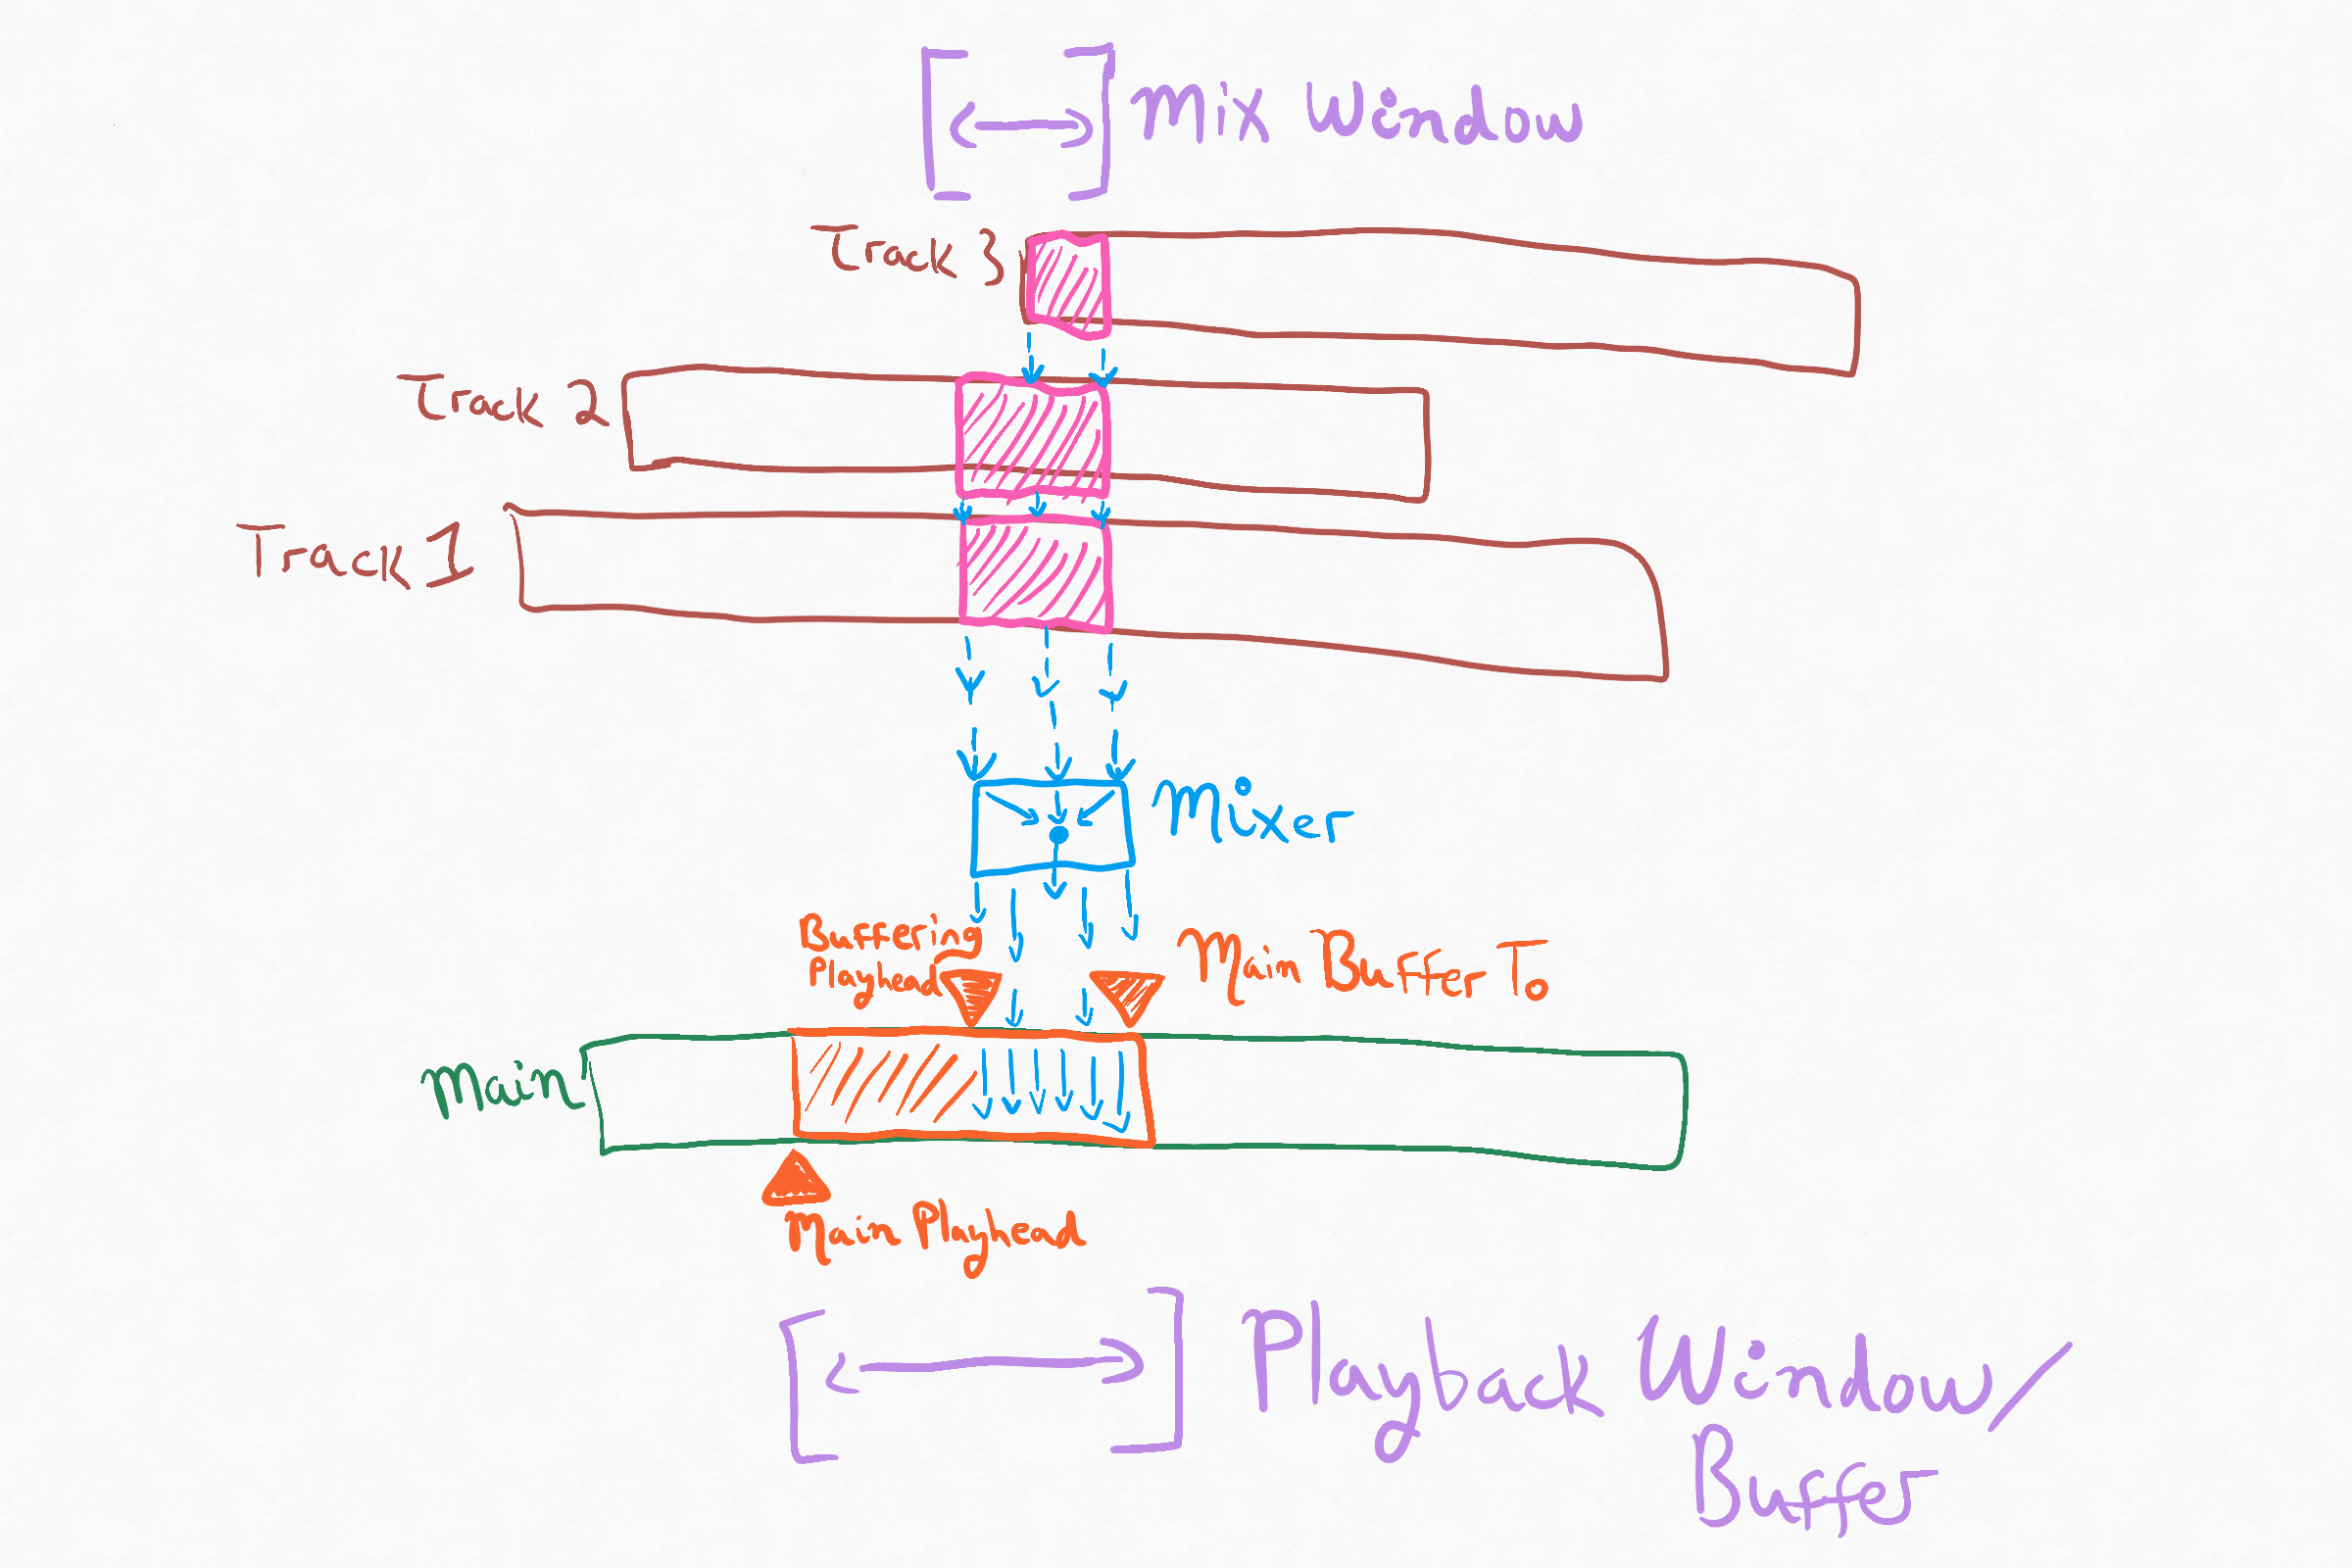 Mix Window
Track 3
Track 2
Track 1
Mixer
Buffering
Playhead
Main Buffer To
Main
Main Playhead
Playback Window/
Buffer